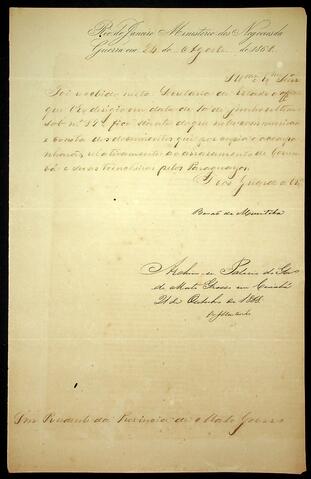 Rio de Janeiro Ministerio dos Negocios da
Guerra em 24 de Agosto de 1868.
Illmo. Exmo. Snr.
Foi recebido nesta Secretaria de Estado o officio
que V. Ex. dirigio em data de 10 de junho ultimo
sob nº 79, e fico sciente do que nelle communica
e consta dos documentos que por copia o acompa-
nharão, relativamente ao arrasamento de Corum-
bá e suas trincheiras pelos Paraguayos.
Deos Guarde a V. Ex.
Barão de Muritiba
Archive-se. Palacio do Governo
de Mato Grosso em Cuiabá
21 de Outubro de 1868
Snr. Presidente da Provincia de Mato Grosso